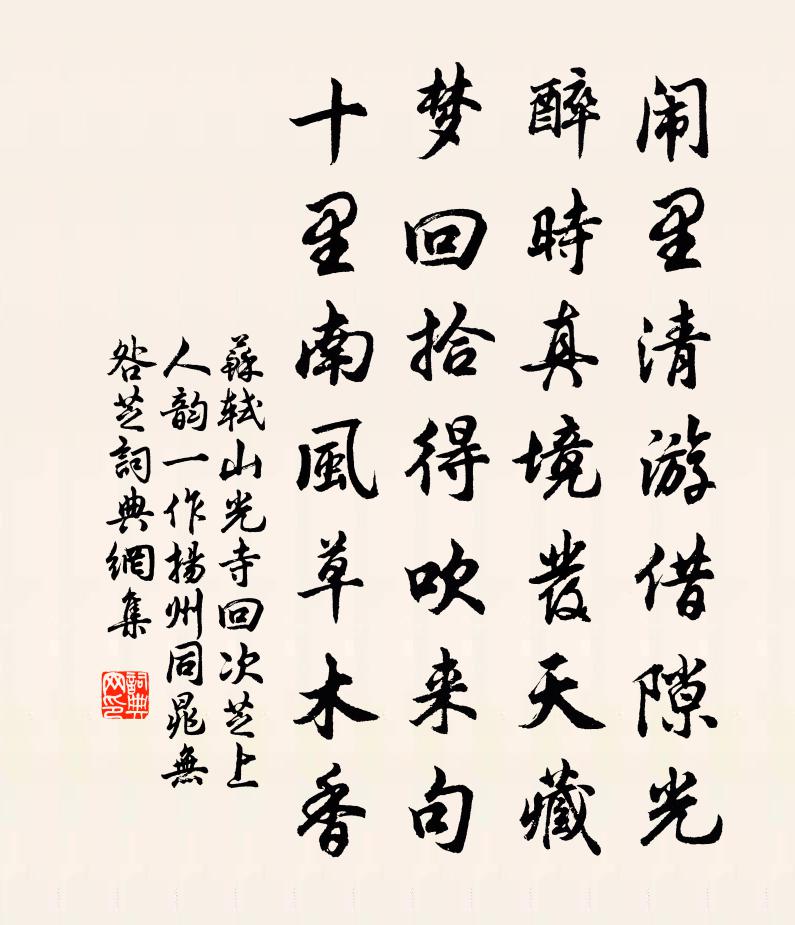 闹里清游借隙光
醉時真境發天藏
梦回拾得吹来句
十里南風草木香
蘇軾山光寺回次芝上
人韵一作揚州同晁無
咎芝詞典網集
詞典
网印